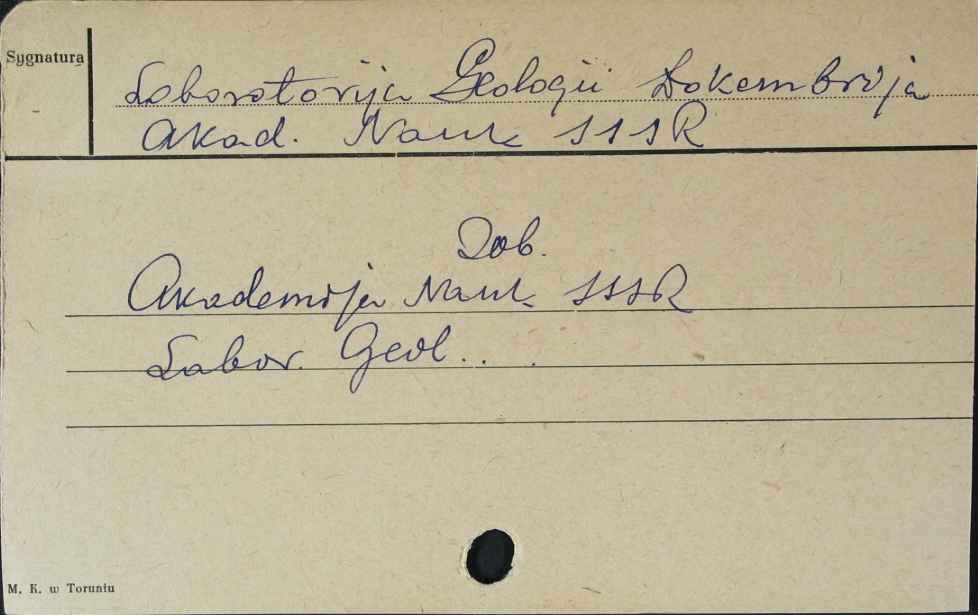 Sygnatura
Laboratorija Geologii Dokembrija
Akad. Nauk SSSR
Zob.
Akademija Nauk SSSR
Labor. Geol...
M. K. w Toruniu